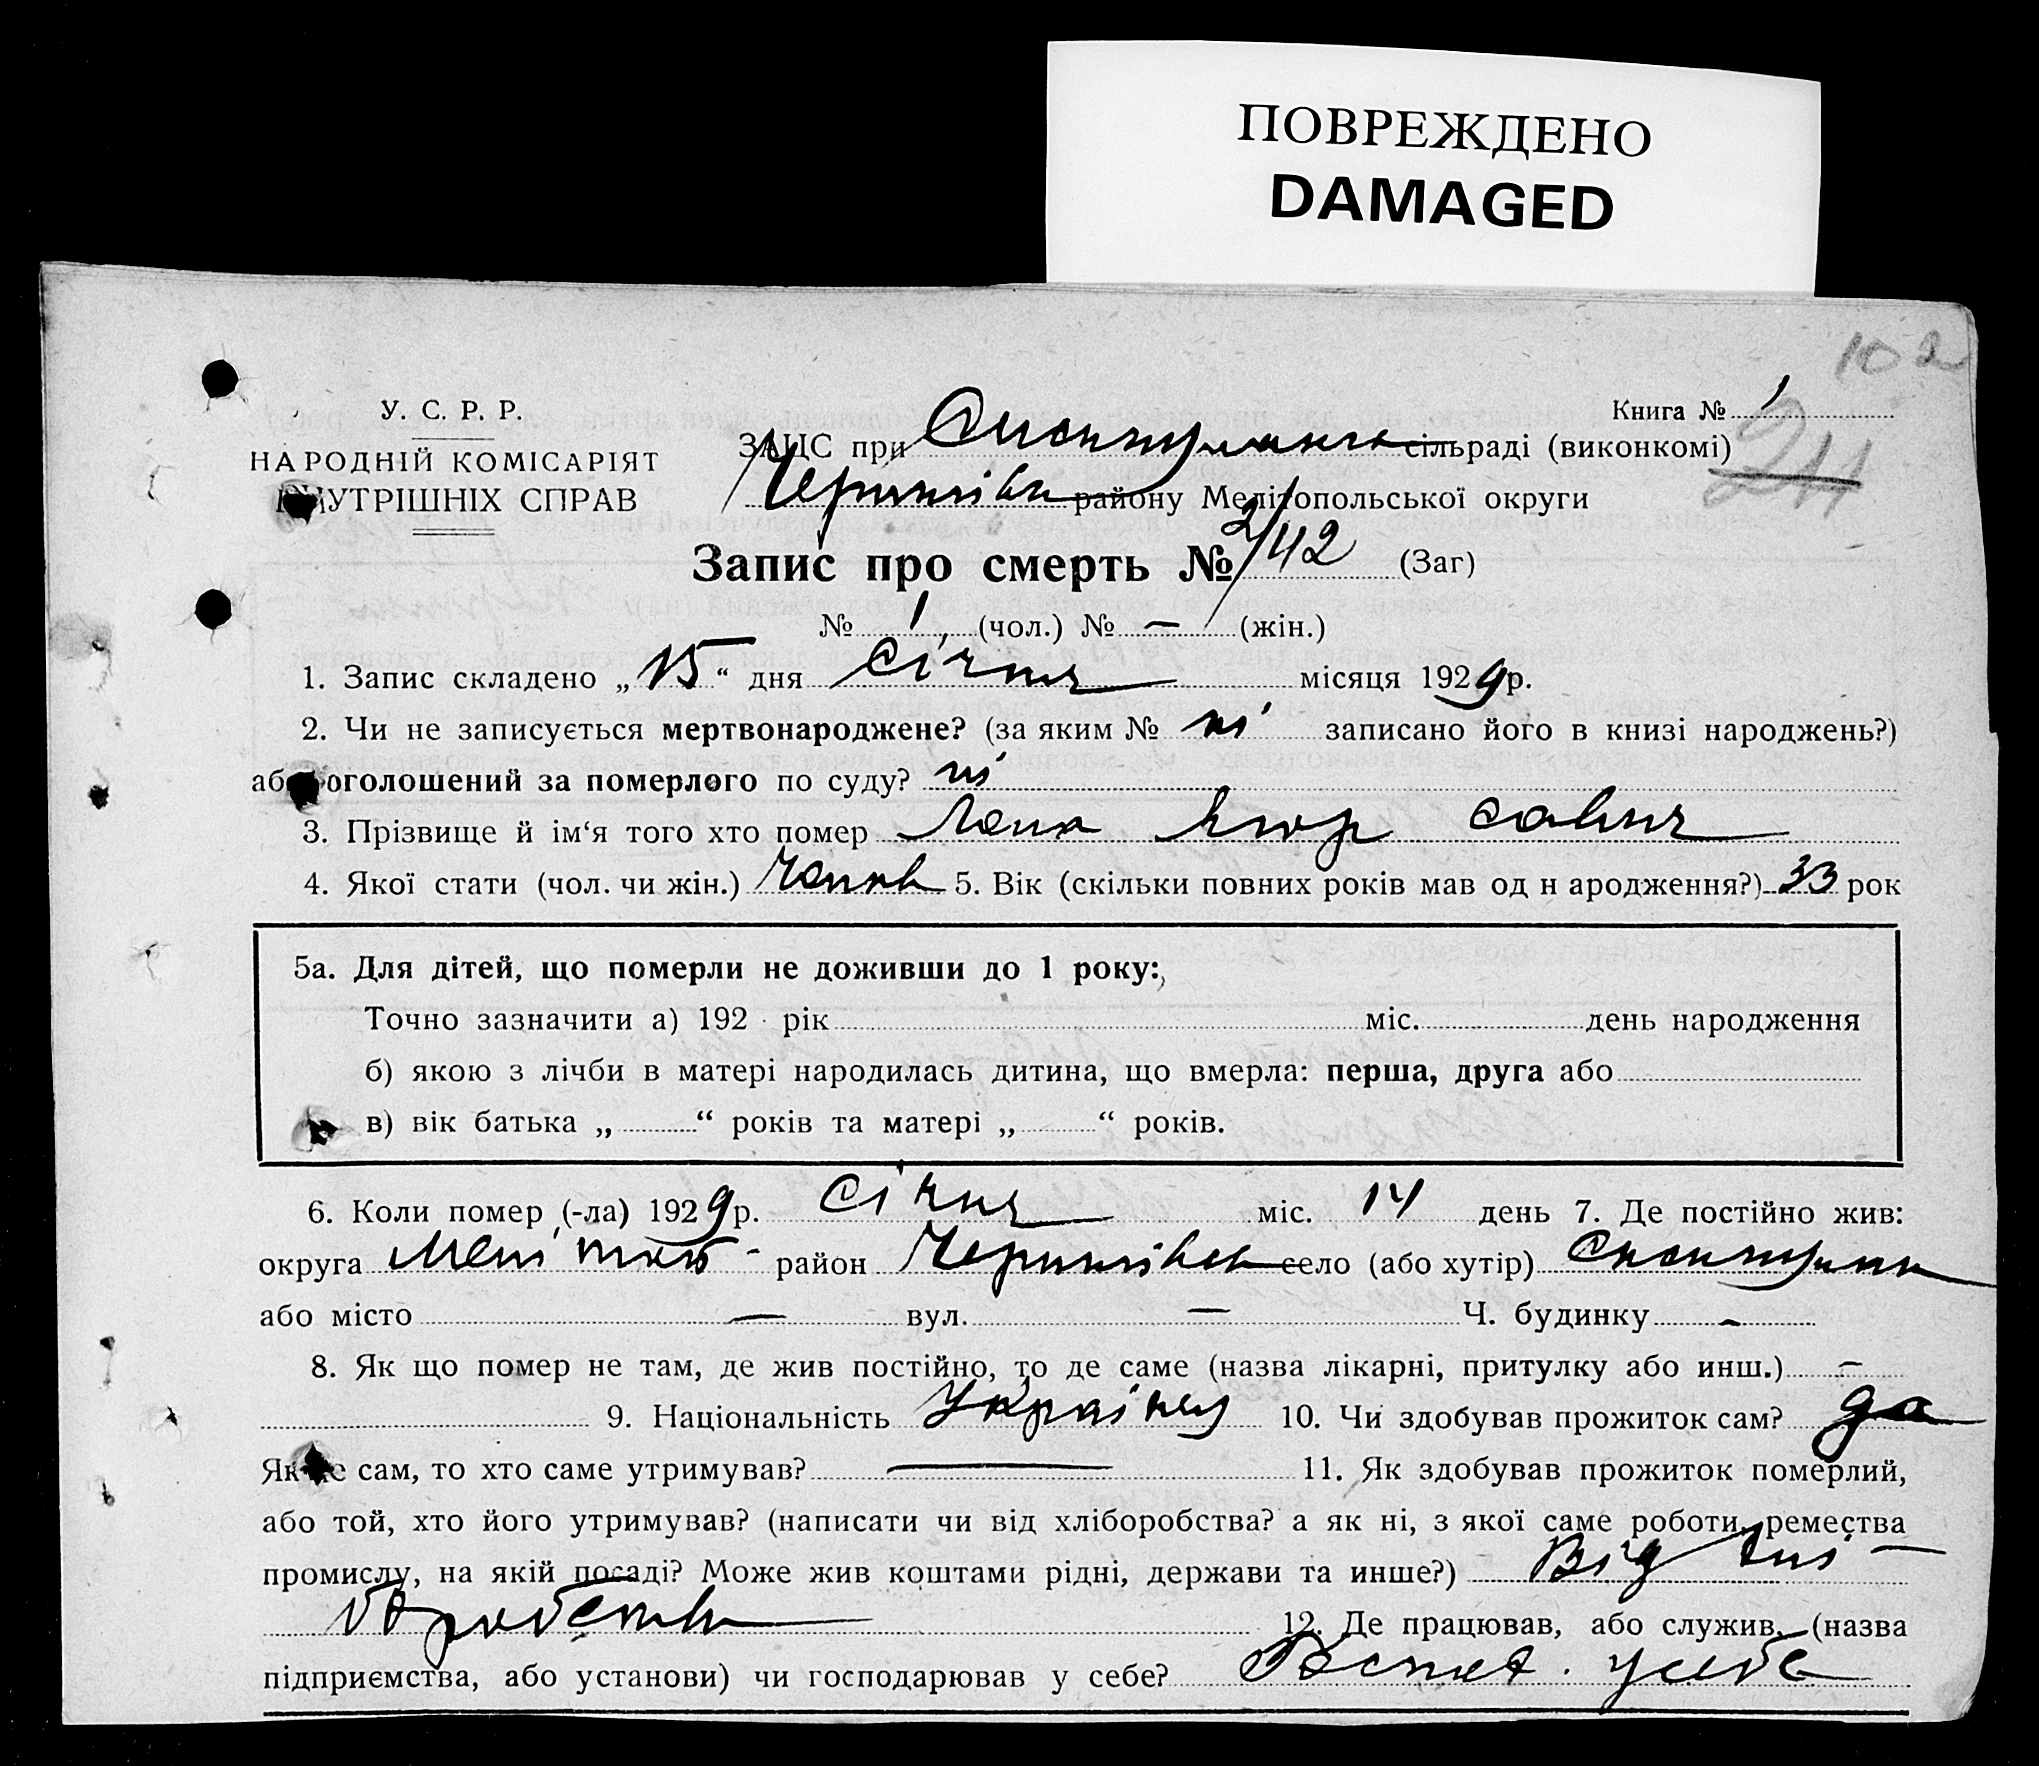 ПОВРЕЖДЕНО
DAMAGED
102
У. С. Р. Р.
НАРОДНІЙ КОМІСАРІЯТ
ВНУТРІШНІХ СПРАВ
Книга № 1
211
ЗАЦС при сільраді (виконкомі)
району Мелітопольської округи
Запис про смерть № 2/42 (Заг)
№ 1 (чол.) № — (жін.)
1. Запис складено „15“ дня Січня місяця 1929 р.
2. Чи не записується мертвонароджене? (за яким № ні записано його в книзі народжень?)
або оголошений за померлого по суду? ні
3. Прізвище й ім‘я того хто помер Егор Савич
4. Якої стати (чол. чи жін.) Чолов 5. Вік (скільки повних років мав од н ародження?) 33 рок
5а. Для дітей, що померли не доживши до 1 року:
Точно зазначити а) 192 рік міс. день народження
б) якою з лічби в матері народилась дитина, що вмерла: перша, друга або
в) вік батька „ “ років та матері „ “ років.
6. Коли помер (-ла) 1929 р. Січня міс. 14 день 7. Де постійно жив:
округа район село (або хутір)
або місто — вул. — Ч. будинку -
8. Як що помер не там, де жив постійно, то де саме (назва лікарні, притулку або инш.) —
9. Національність Українец 10. Чи здобував прожиток сам? да
Як не сам, то хто саме утримував? — 11. Як здобував прожиток померлий,
або той, хто його утримував? (написати чи від хліборобства? а як ні, з якої саме роботи, ремества
промислу, на якій посаді? Може жив коштами рідні, держави та инше?) Від хлі-
боробства
12. Де працював, або служив, (назва
підприємства, або установи) чи господарював у себе? у себе